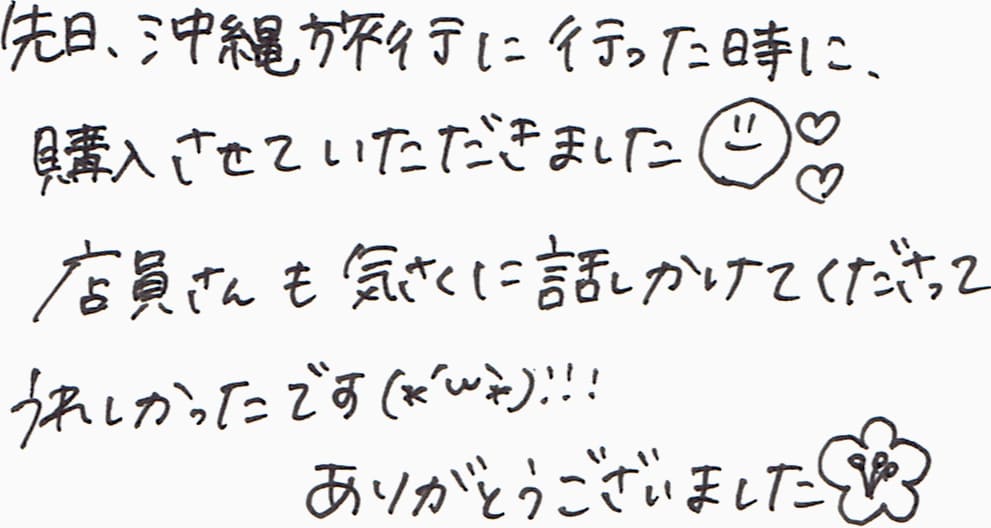 先日、沖縄旅行に行った時に、
購入させていただきました
店員さんも気さくに話しかけてくださって
うれしかったです(*´ω`*)!!!
ありがとうございました